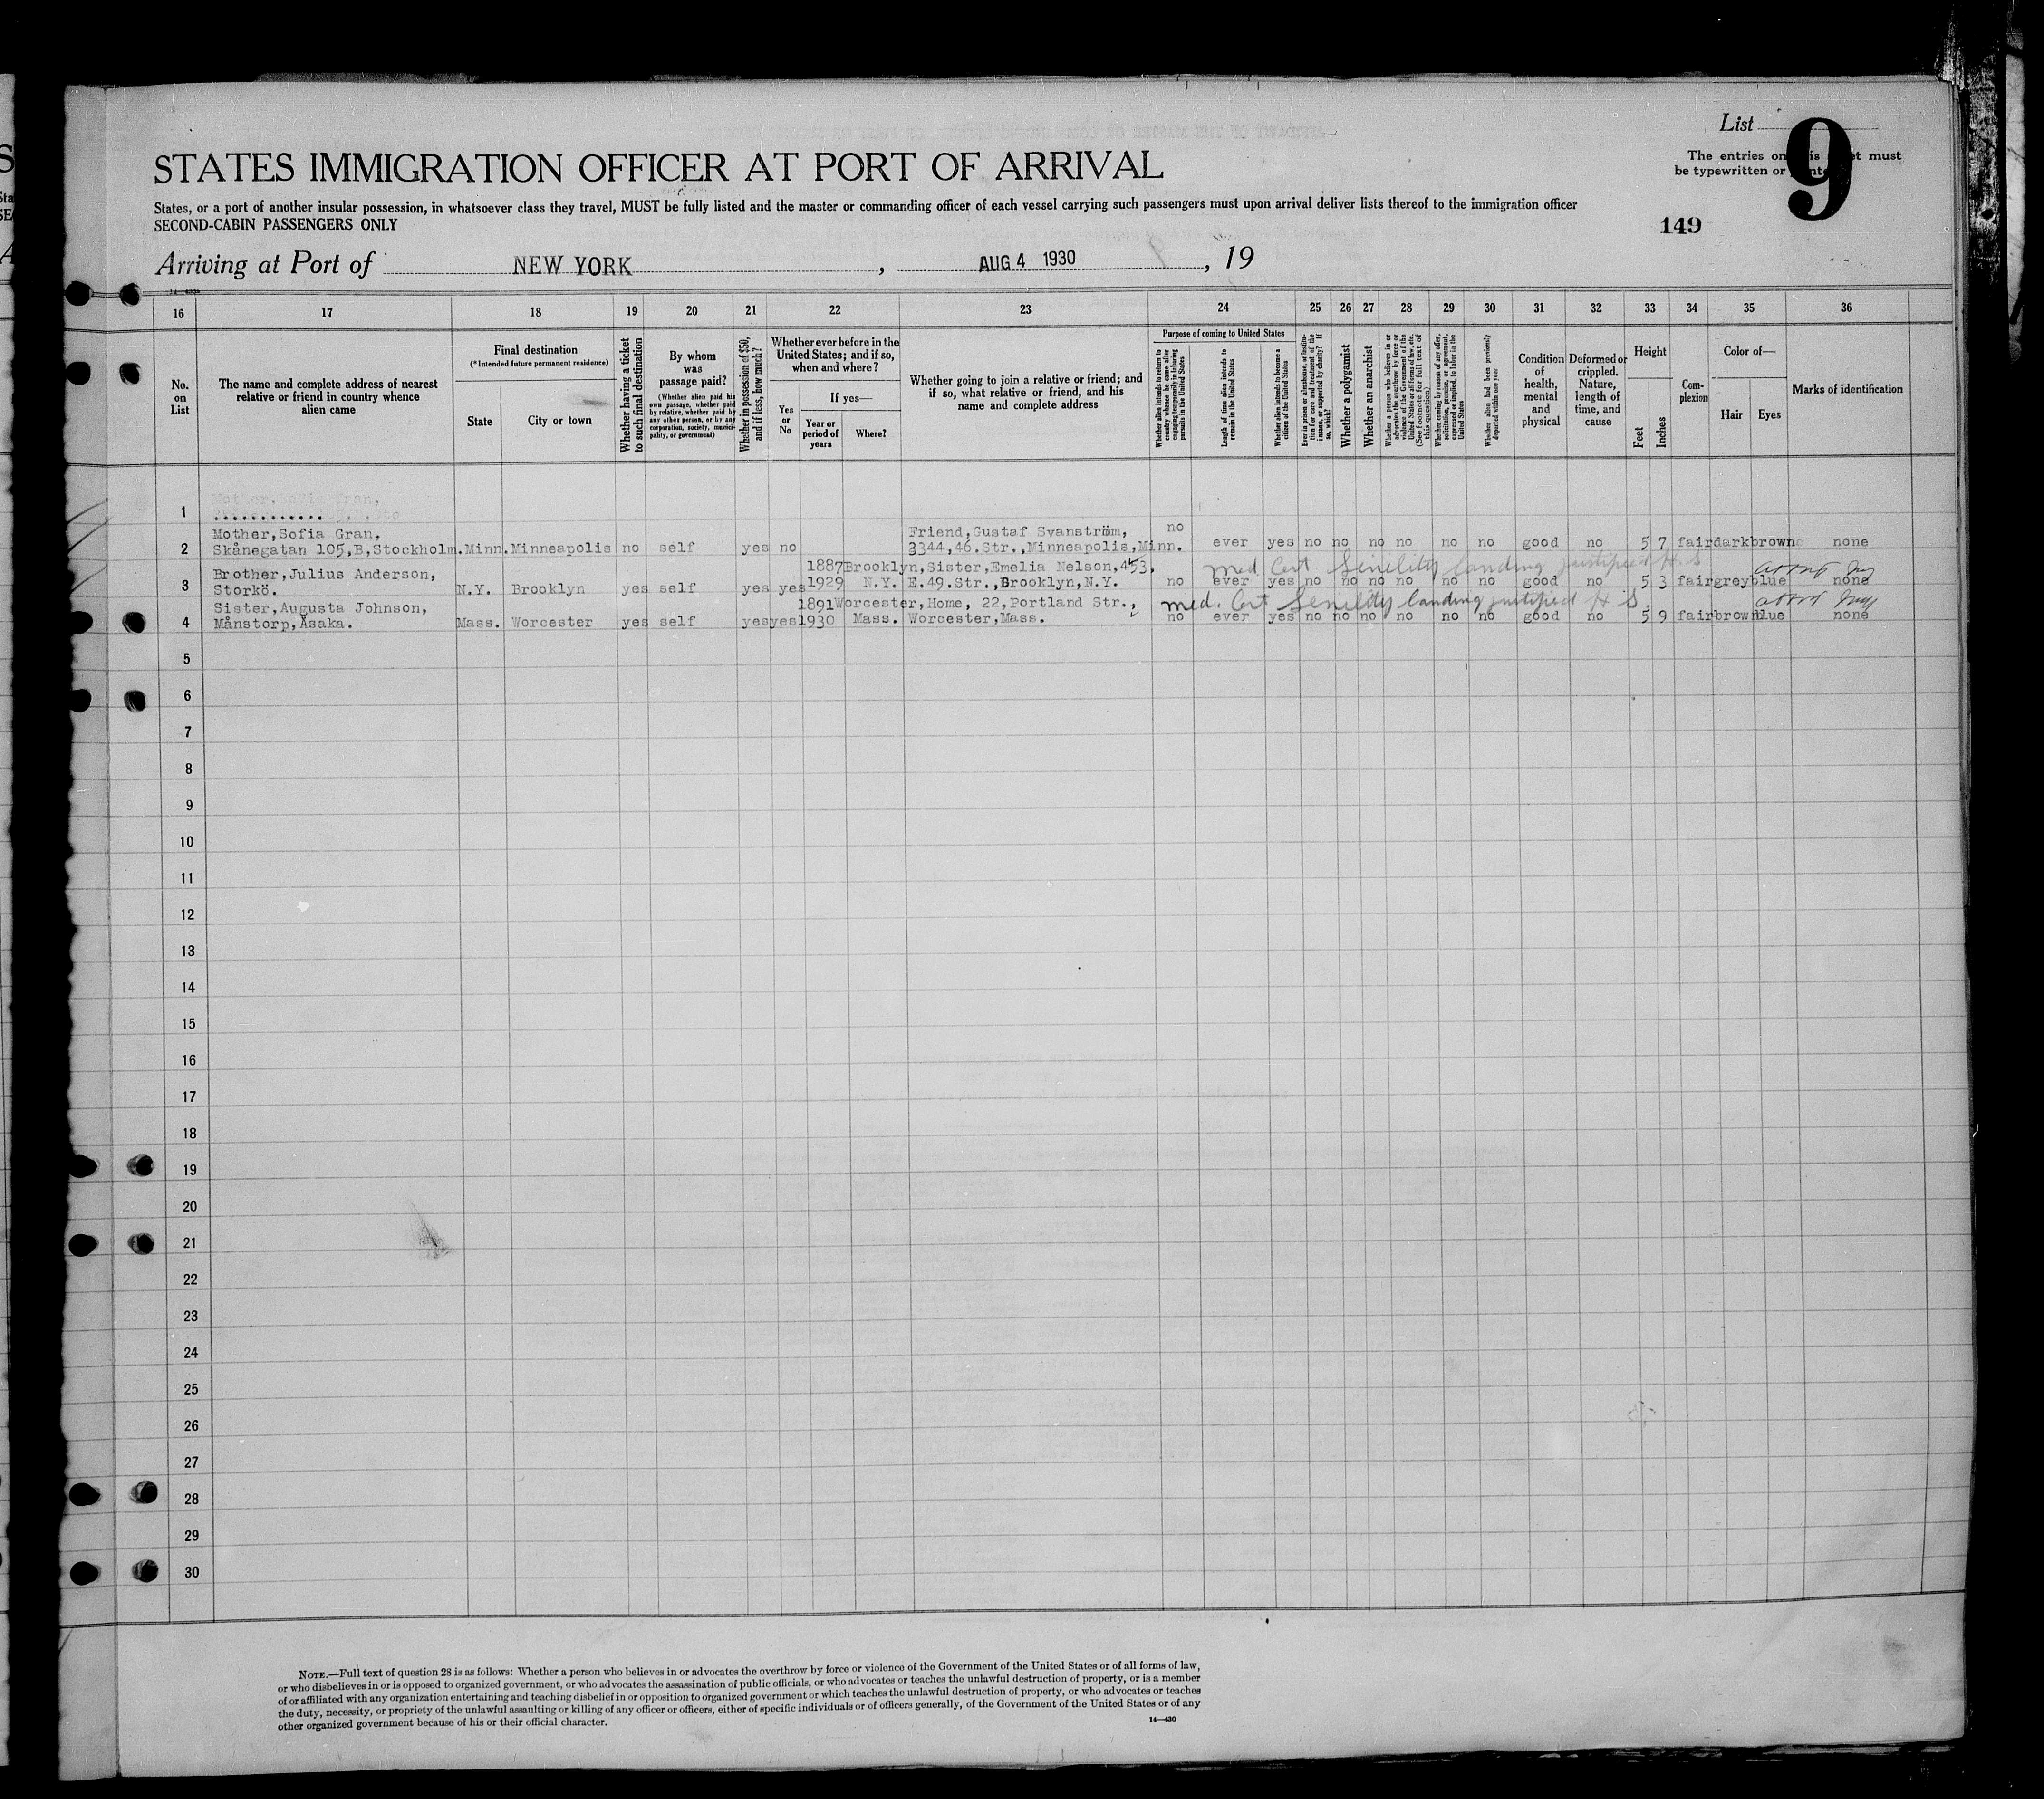 List
9
The entries on this sheet must
be typewritten or printed
STATES IMMIGRATION OFFICER AT PORT OF ARRIVAL
States, or a port of another insular possession, in whatsoever class they travel, MUST be fully listed and the master or commanding officer of each vessel carrying such passengers must upon arrival deliver lists thereof to the immigration officer
SECOND-CABIN PASSENGERS ONLY
149
Arriving at Port of NEW YORK, AUG 4 1930, 19
14—430
16 17 18 19 20 21 22 23 24 25 26 27 28 29 30 31 32 33 34 35 36
No. on List
The name and complete address of nearest relative or friend in country whence alien came
Final destination
(*Intended future permanent residence)
State
City or town
Whether having a ticket to such final destination
By whom was passage paid?
(Whether alien paid his own passage, whether paid by relative, whether paid by any other person, or by any corporation, society, municipality, or government)
Whether in possession of $50, and if less, how much?
Whether ever before in the United States; and if so, when and where?
Yes or No
If yes—
Year or period of years
Where?
Whether going to join a relative or friend; and if so, what relative or friend, and his name and complete address
Purpose of coming to United States
Whether alien intends to return to country whence he came after engaging temporarily in laboring pursuits in the United States
Length of time alien intends to remain in the United States
Whether alien intends to become a citizen of the United States
Ever in prison or almshouse, or institution for care and treatment of the insane, or supported by charity? If so, which?
Whether a polygamist
Whether an anarchist
Whether a person who believes in or advocates the overthrow by force or violence of the Government of the United States or all forms of law, etc. (See footnote for full text of this question)
Whether coming by reason of any offer, solicitation, promise, or agreement, expressed or implied, to labor in the United States
Whether alien had been previously deported within one year
Condition of health, mental and physical
Deformed or crippled. Nature, length of time, and cause
Height
Feet
Inches
Complexion
Color of—
Hair
Eyes
Marks of identification
1
Mother, Sofia Gran, Friend, Gustaf Svanström, no
2 Skånegatan 105, B, Stockholm. Minn. Minneapolis no self yes no 3344, 46. Str., Minneapolis, Minn. ever yes no no no no no no good no 5 7 fair dark brown none
Brother, Julius Anderson, 1887 Brooklyn, Sister, Emelia Nelson, 453, med Cert Senility landing justified H.S.
3 Storkö. N.Y. Brooklyn yes self yes yes 1929 N.Y. E. 49. Str., Brooklyn, N.Y. no ever yes no no no no no no good no 5 3 fair grey blue none
Sister, Augusta Johnson, 1891 Worcester, Home, 22, Portland Str., med. Cert Senility landing justified H S
4 Månstorp, Åsaka. Mass. Worcester yes self yes yes 1930 Mass. Worcester, Mass. no ever yes no no no no no no good no 5 9 fair brown blue none
5
6
7
8
9
10
11
12
13
14
15
16
17
18
19
20
21
22
23
24
25
26
27
28
29
30
NOTE.—Full text of question 28 is as follows: Whether a person who believes in or advocates the overthrow by force or violence of the Government of the United States or of all forms of law,
or who disbelieves in or is opposed to organized government, or who advocates the assassination of public officials, or who advocates or teaches the unlawful destruction of property, or is a member
of or affiliated with any organization entertaining and teaching disbelief in or opposition to organized government or which teaches the unlawful destruction of property, or who advocates or teaches
the duty, necessity, or propriety of the unlawful assaulting or killing of any officer or officers, either of specific individuals or of officers generally, of the Government of the United States or of any
other organized government because of his or their official character.
14—430